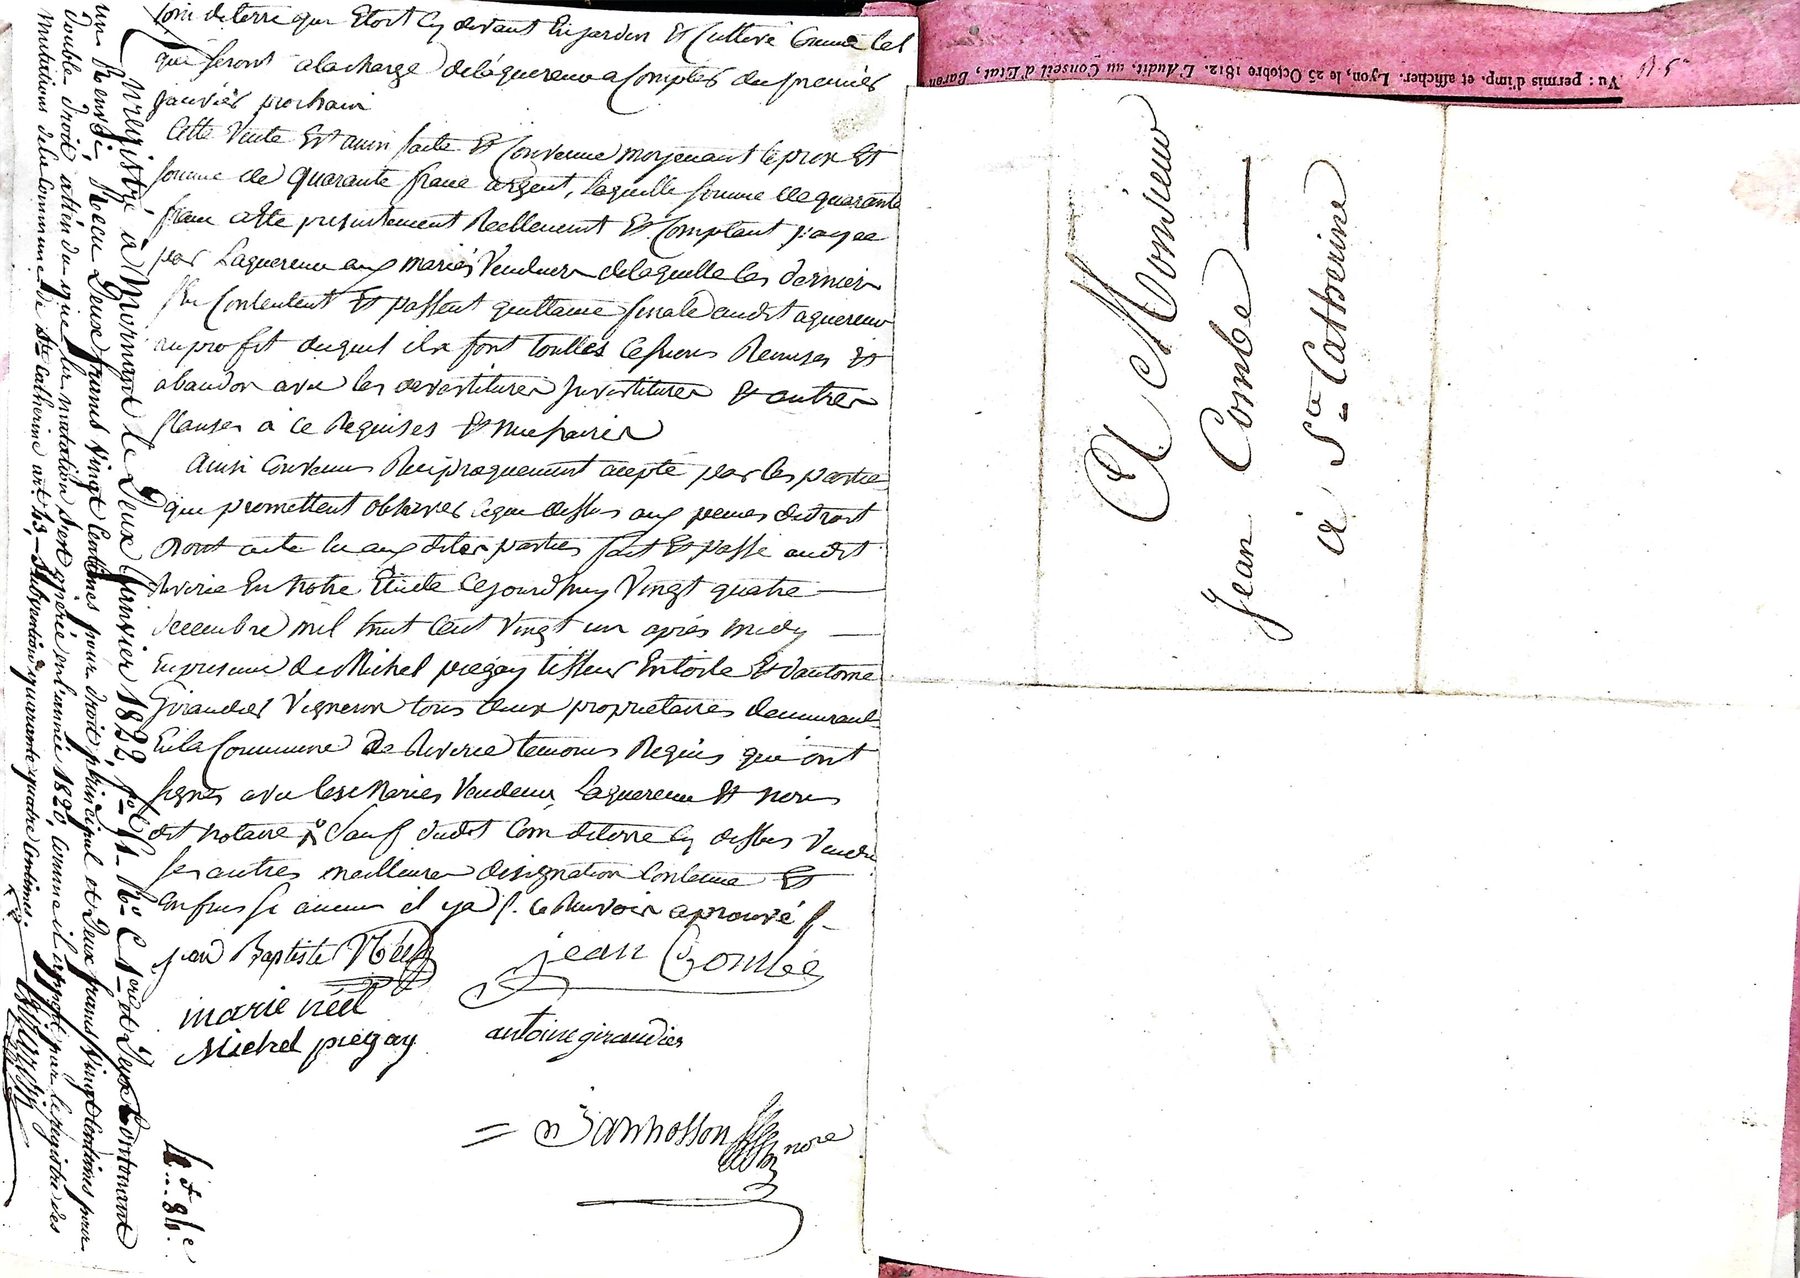 Coin de terre que Etoit Cy devant En jardin Et Cultivé Comme tel
que seront a la charge de l'aquereur a Compter du premier
janvier prochain
Cette Vente Est ainsi faite Et Convenue moyenant le prix Et
somme de quarante franc argent, laquelle somme de quarante
franc a Eté presentement Reellement Et Comptant payée
par l'aquereur aux mariés Vendeurs de laquelle les dernier
se Contentent Et passent quittance finale audit aquereur
au profit duquel ils font touttes Cessions Remises Et
abandon avec les devestitures investitures Et autres
Clauses à ce Requises Et necessaires
Ainsi Convenu Reciproquement acepté par les parties
que promettent observer ce que dessus aux peines de droit
Dont acte lu aux dites parties fait Et passé audit
Riverie En notre Etude Cejourd'huy Vingt quatre
decembre mil huit Cent Vingt un après midy
En presence de Michel piégay tisseur En toile Et d'antoine
Giraudier Vigneron tous deux proprietaires demeurant
En la Commune de Riverie temoins Requis qui ont
signés avec les Mariés Vendeurs, l'aquereur Et nous
dit notaire Sauf dudit Coin de terre Cy dessus Vendu
ses autres meilleures designation Contenue Et
Confins si aucuns il y a /. le Renvoi aprouvé
jean Baptiste
jean Combe
marie néel
Michel piégay
antoine giraudier
nore
Enregistré à Mornant le Deux Janvier 1822, fo 41 Ro C 1ere et Deux Contenant
un Renvoi, Recu Deux francs Vingt Centimes pour droit principal et Deux francs Vingt Centimes pour
double droit, attendu que la mutation s'est opérée en l'année 1820, comme il apport par le registre des
Mutations de la Commune de Ste Catherine art. 43 Subvention quarante quatre Centimes.
Vu : permis d'imp. et afficher. Lyon, le 25 Octobre 1812. L'Audit. au Conseil d'Etat, Baron
A Monsieur
Jean Combe
à Ste Catherine